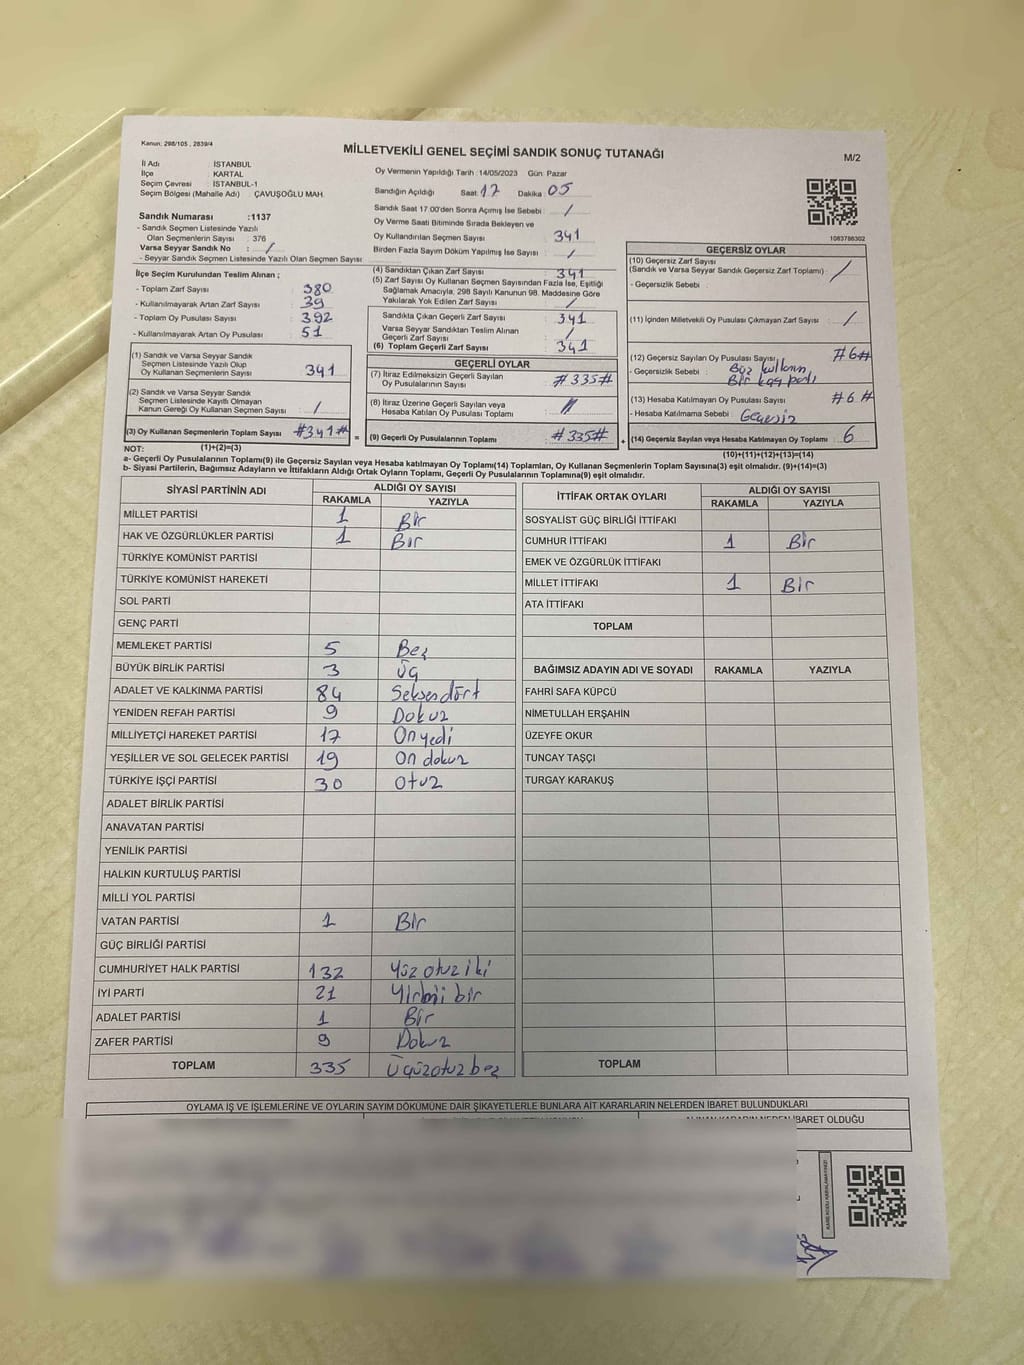 Kanun: 298/105 , 2839/4
MİLLETVEKİLİ GENEL SEÇİMİ SANDIK SONUÇ TUTANAĞI
M/2
İl Adı : İSTANBUL
İlçe : KARTAL
Seçim Çevresi : İSTANBUL-1
Seçim Bölgesi (Mahalle Adı) : ÇAVUŞOĞLU MAH.
Sandık Numarası :1137
- Sandık Seçmen Listesinde Yazılı
Olan Seçmenlerin Sayısı : 376
Varsa Seyyar Sandık No : /
- Seyyar Sandık Seçmen Listesinde Yazılı Olan Seçmen Sayısı :
Oy Vermenin Yapıldığı Tarih : 14/05/2023 Gün: Pazar
Sandığın Açıldığı Saat: 17 Dakika : 05
Sandık Saat 17:00'den Sonra Açımış İse Sebebi : /
Oy Verme Saati Bitiminde Sırada Bekleyen ve
Oy Kullandırılan Seçmen Sayısı : 341
Birden Fazla Sayım Döküm Yapılmış İse Sayısı : /
1083786302
İlçe Seçim Kurulundan Teslim Alınan ;
- Toplam Zarf Sayısı : 380
- Kullanılmayarak Artan Zarf Sayısı : 39
- Toplam Oy Pusulası Sayısı : 392
- Kullanılmayarak Artan Oy Pusulası : 51
(1) Sandık ve Varsa Seyyar Sandık
Seçmen Listesinde Yazılı Olup
Oy Kullanan Seçmenlerin Sayısı : 341
(2) Sandık ve Varsa Seyyar Sandık
Seçmen Listesinde Kayıtlı Olmayan
Kanun Gereği Oy Kullanan Seçmen Sayısı : /
(3) Oy Kullanan Seçmenlerin Toplam Sayısı : #341#
(1)+(2)=(3)
(4) Sandıktan Çıkan Zarf Sayısı : 341
(5) Zarf Sayısı Oy Kullanan Seçmen Sayısından Fazla İse, Eşitliği
Sağlamak Amacıyla, 298 Sayılı Kanunun 98. Maddesine Göre
Yakılarak Yok Edilen Zarf Sayısı : /
Sandıkta Çıkan Geçerli Zarf Sayısı : 341
Varsa Seyyar Sandıktan Teslim Alınan
Geçerli Zarf Sayısı : /
(6) Toplam Geçerli Zarf Sayısı : 341
GEÇERLİ OYLAR
(7) İtiraz Edilmeksizin Geçerli Sayılan
Oy Pusulalarının Sayısı : #335#
(8) İtiraz Üzerine Geçerli Sayılan veya
Hesaba Katılan Oy Pusulası Toplamı :
= (9) Geçerli Oy Pusulalarının Toplamı : #335# +
GEÇERSİZ OYLAR
(10) Geçersiz Zarf Sayısı
(Sandık ve Varsa Seyyar Sandık Geçersiz Zarf Toplamı) : /
- Geçersizlik Sebebi :
(11) İçinden Milletvekili Oy Pusulası Çıkmayan Zarf Sayısı : /
(12) Geçersiz Sayılan Oy Pusulası Sayısı : #6#
- Geçersizlik Sebebi :
(13) Hesaba Katılmayan Oy Pusulası Sayısı : #6#
- Hesaba Katılmama Sebebi : Geçersiz
(14) Geçersiz Sayılan veya Hesaba Katılmayan Oy Toplamı : 6
(10)+(11)+(12)+(13)=(14)
NOT:
a- Geçerli Oy Pusulalarının Toplamı(9) ile Geçersiz Sayılan veya Hesaba katılmayan Oy Toplamı(14) Toplamları, Oy Kullanan Seçmenlerin Toplam Sayısına(3) eşit olmalıdır. (9)+(14)=(3)
b- Siyasi Partilerin, Bağımsız Adayların ve İttifakların Aldığı Ortak Oyların Toplamı, Geçerli Oy Pusulalarının Toplamına(9) eşit olmalıdır.
SİYASİ PARTİNİN ADI ALDIĞI OY SAYISI
RAKAMLA YAZIYLA
MİLLET PARTİSİ 1 Bir
HAK VE ÖZGÜRLÜKLER PARTİSİ 1 Bir
TÜRKİYE KOMÜNİST PARTİSİ
TÜRKİYE KOMÜNİST HAREKETİ
SOL PARTİ
GENÇ PARTİ
MEMLEKET PARTİSİ 5 Beş
BÜYÜK BİRLİK PARTİSİ 3 Üç
ADALET VE KALKINMA PARTİSİ 84 Seksendört
YENİDEN REFAH PARTİSİ 9 Dokuz
MİLLİYETÇİ HAREKET PARTİSİ 17 Onyedi
YEŞİLLER VE SOL GELECEK PARTİSİ 19 On dokuz
TÜRKİYE İŞÇİ PARTİSİ 30 Otuz
ADALET BİRLİK PARTİSİ
ANAVATAN PARTİSİ
YENİLİK PARTİSİ
HALKIN KURTULUŞ PARTİSİ
MİLLİ YOL PARTİSİ
VATAN PARTİSİ 1 Bir
GÜÇ BİRLİĞİ PARTİSİ
CUMHURİYET HALK PARTİSİ 132 Yüz otuz iki
İYİ PARTİ 21 Yirmi bir
ADALET PARTİSİ 1 Bir
ZAFER PARTİSİ 9 Dokuz
TOPLAM 335 Üçyüzotuz beş
İTTİFAK ORTAK OYLARI ALDIĞI OY SAYISI
RAKAMLA YAZIYLA
SOSYALİST GÜÇ BİRLİĞİ İTTİFAKI
CUMHUR İTTİFAKI 1 Bir
EMEK VE ÖZGÜRLÜK İTTİFAKI
MİLLET İTTİFAKI 1 Bir
ATA İTTİFAKI
TOPLAM
BAĞIMSIZ ADAYIN ADI VE SOYADI RAKAMLA YAZIYLA
FAHRİ SAFA KÜPCÜ
NİMETULLAH ERŞAHİN
ÜZEYFE OKUR
TUNCAY TAŞÇI
TURGAY KARAKUŞ
TOPLAM
OYLAMA İŞ VE İŞLEMLERİNE VE OYLARIN SAYIM DÖKÜMÜNE DAİR ŞİKAYETLERLE BUNLARA AİT KARARLARIN NELERDEN İBARET BULUNDUKLARI
ALINAN KARARIN NEDEN İBARET OLDUĞU